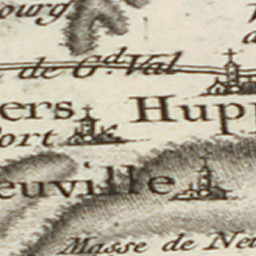 ourg
de G.d Val
ers Hupp
ort
euville
Masse de Neu